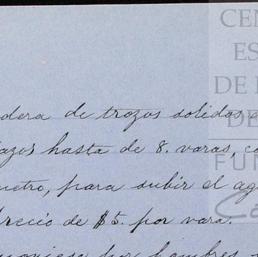 CEN
ES
DE
DE
FUN
dera de trozos solidos
azos hasta de 8. varas, co
metro, para subir el ag
precio de $5. por vara.
por hombres